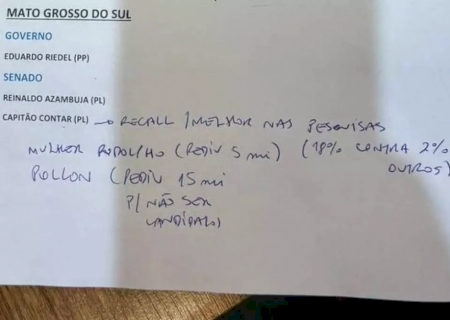 MATO GROSSO DO SUL
GOVERNO
EDUARDO RIEDEL (PP)
SENADO
REINALDO AZAMBUJA (PL)
CAPITÃO CONTAR (PL) → RECALL / MELHOR NAS PESQUISAS
MULHER RODOLFO (PEDIU 5 mi) (18% CONTRA 2% OUTROS)
POLLON (PEDIU 15 mi
P/ NÃO SER
CANDIDATO)